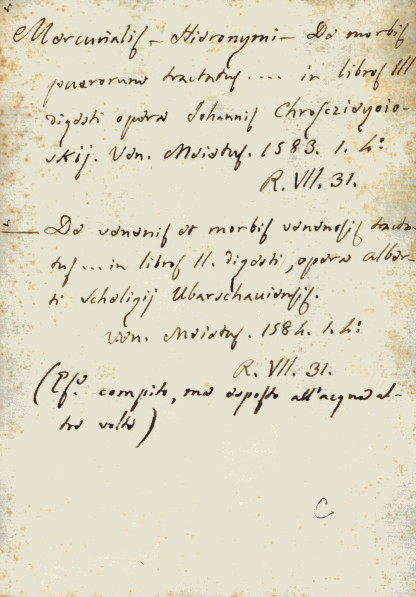 Mercurialis - Hieronymi - De morbis
puerorum tractatus.... in libros III
digesti opera Johannis Chrosczieyoio-
skij. Ven. Meietus. 1583. 1. 4:
R. VII. 31.
De venenis et morbis venenosis tracta-
tus... in libros II. digesti, opera Alber-
ti Scheligij Ubarschauiensis.
Ven. Meietus. 1584. 1. 4:
R. VII. 31.
(Es.e compito, ma esposto all'acqua al-
tre volte)
C